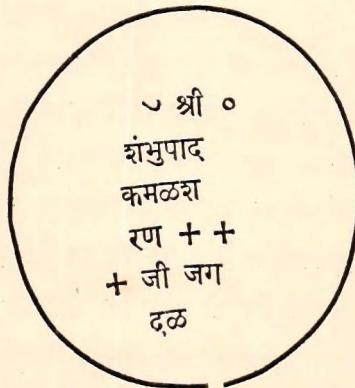 ◡ श्री ०
शंभुपाद
कमळश
रण + +
+ जी जग
दळ